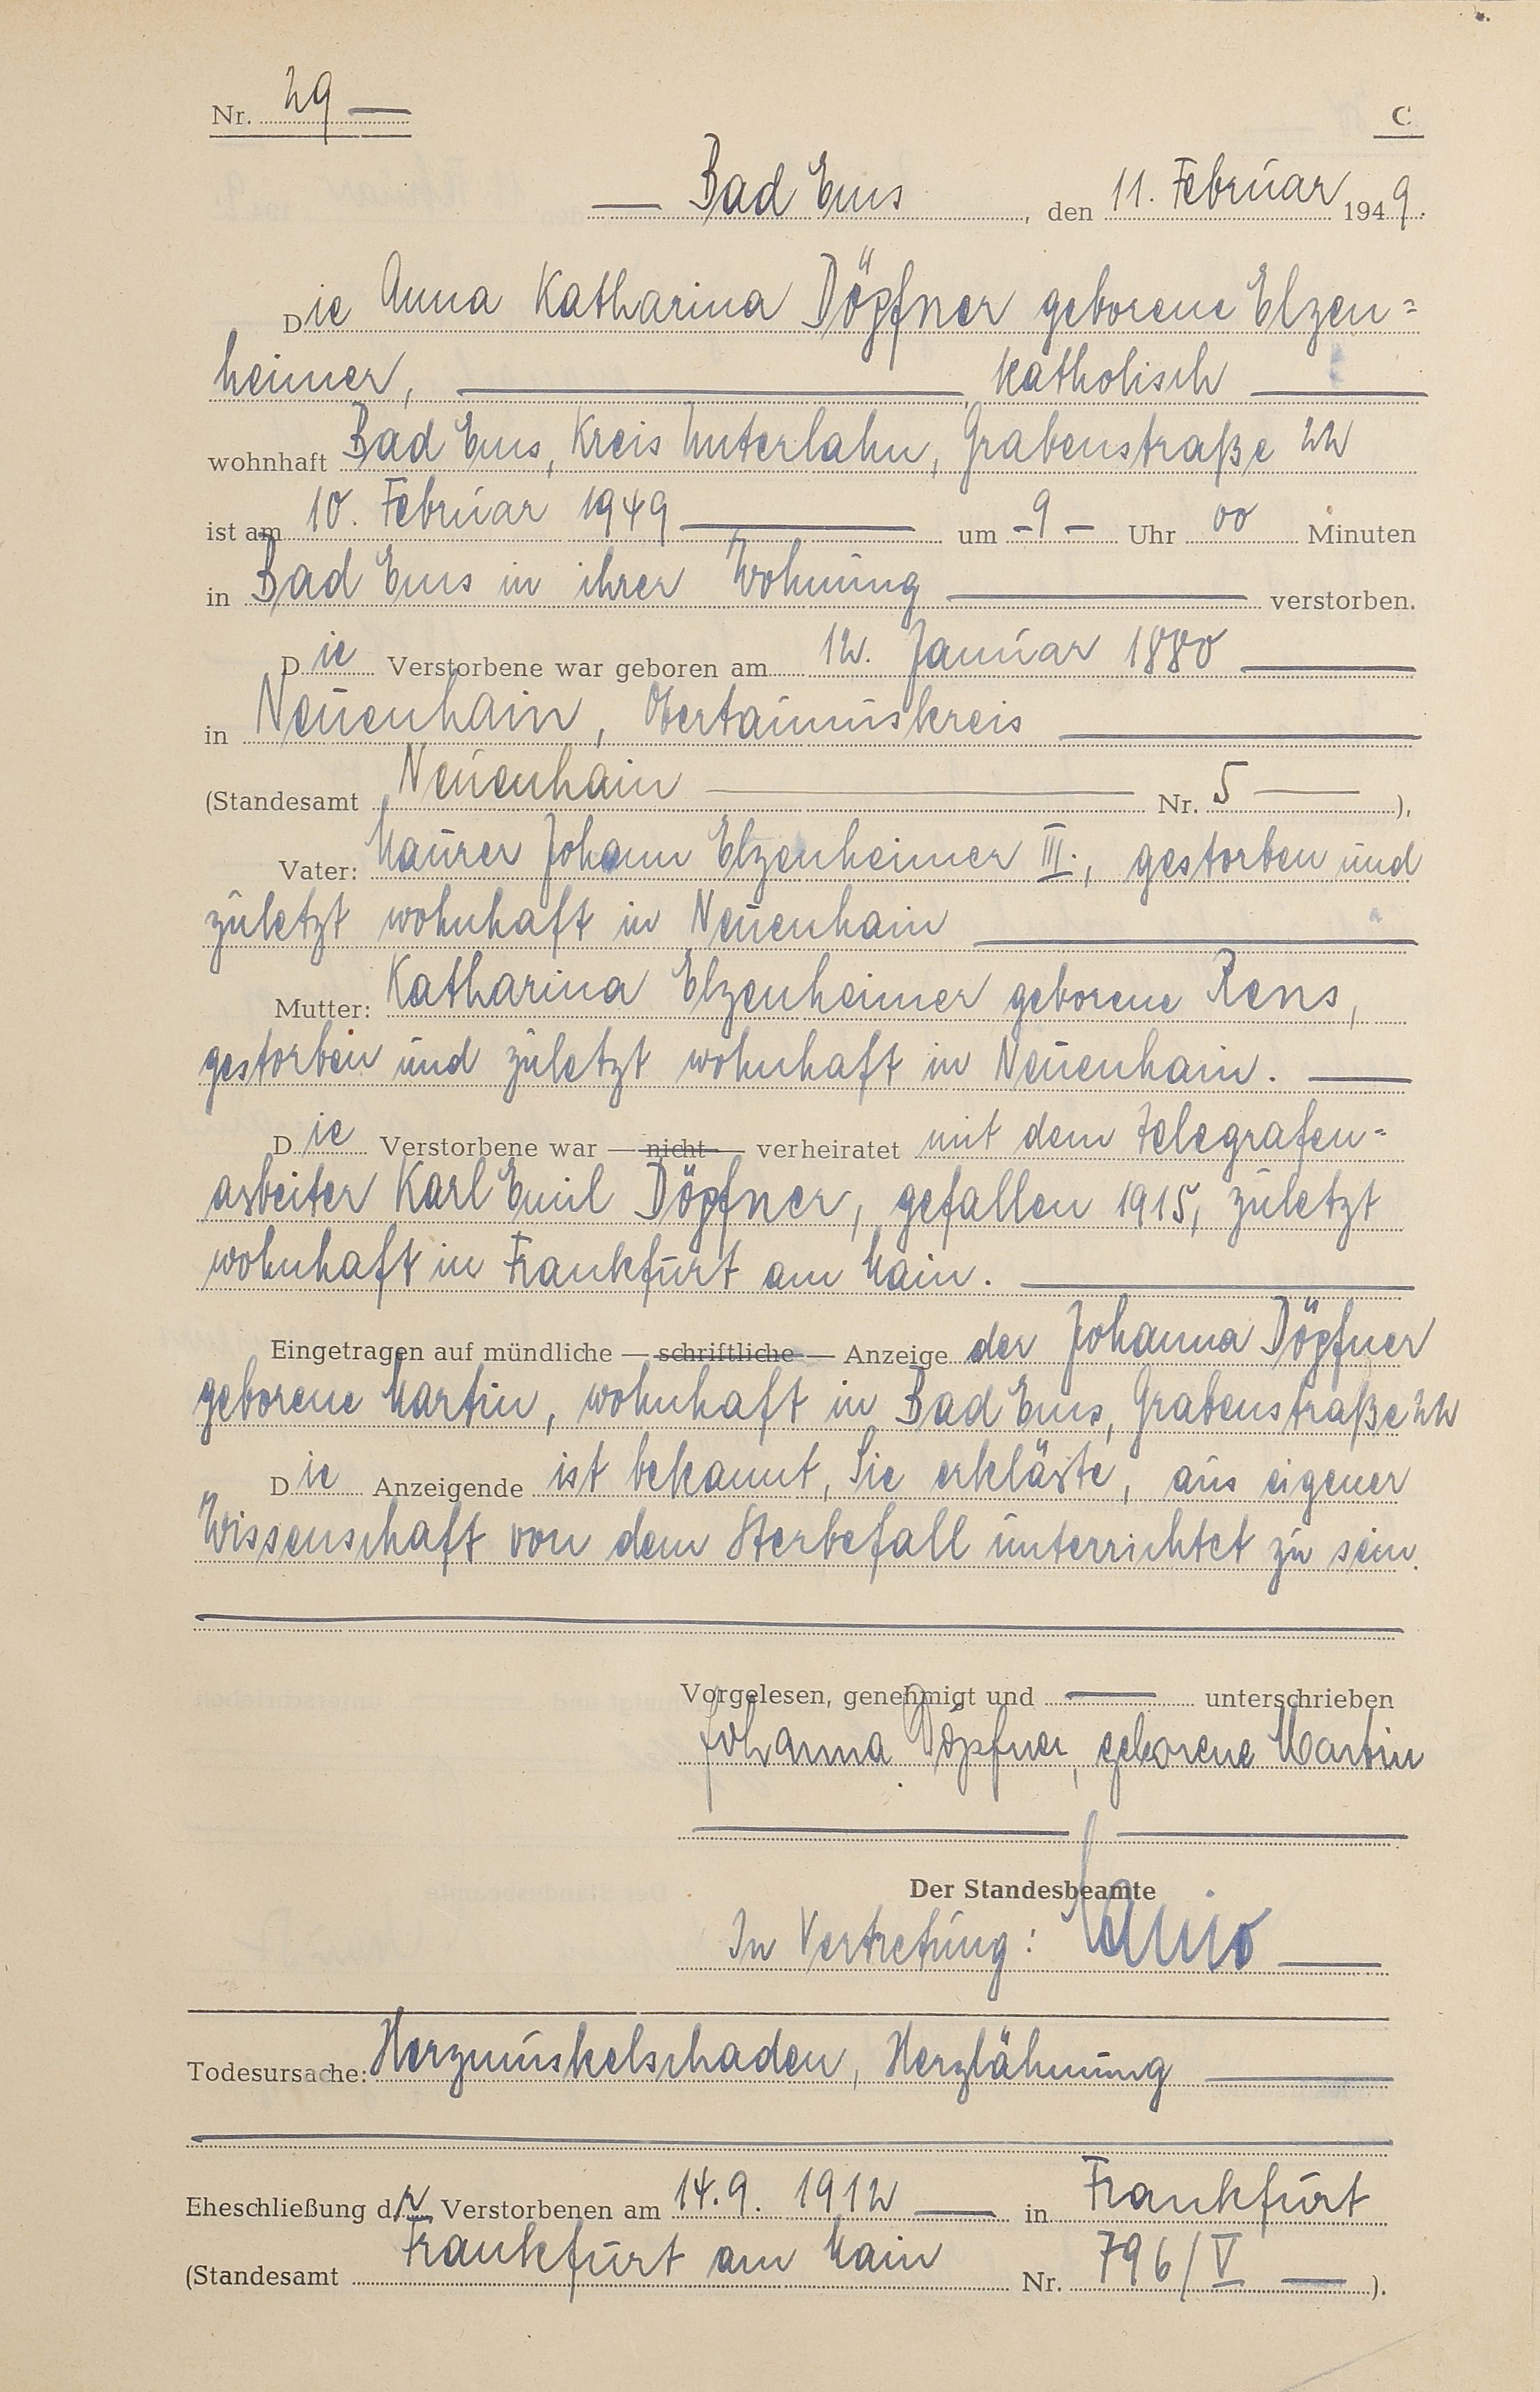 Nr. 29 —
C
— Bad Ems, den 11. Februar 1949.
Die Anna Katharina Döpfner geborene Elzen=
heimer, — , katholisch —
wohnhaft Bad Ems, Kreis Unterlahn, Grabenstraße 22
ist am 10. Februar 1949 — um -9- Uhr 00 Minuten
in Bad Ems in ihrer Wohnung — verstorben.
Die Verstorbene war geboren am 12. Januar 1880 —
in Neuenhain, Obertaunuskreis —
(Standesamt Neuenhain — Nr. 5 — ),
Vater: Maurer Johann Elzenheimer III., gestorben und
zuletzt wohnhaft in Neuenhain —
Mutter: Katharina Elzenheimer geborene Rens,
gestorben und zuletzt wohnhaft in Neuenhain. —
Die Verstorbene war — nicht — verheiratet mit dem Telegrafen=
arbeiter Karl Emil Döpfner, gefallen 1915, zuletzt
wohnhaft in Frankfurt am Main. —
Eingetragen auf mündliche — schriftliche — Anzeige der Johanna Döpfner
geborene Martin, wohnhaft in Bad Ems, Grabenstraße 22
Die Anzeigende ist bekannt, Sie erklärte, aus eigener
Wissenschaft von dem Sterbefall unterrichtet zu sein.
Vorgelesen, genehmigt und — unterschrieben
Johanna Döpfner, geborene Martin
Der Standesbeamte
In Vertretung:
Todesursache: Herzmuskelschaden, Herzlähmung —
Eheschließung der Verstorbenen am 14.9. 1912 — in Frankfurt
(Standesamt Frankfurt am Main Nr. 796/V — ).